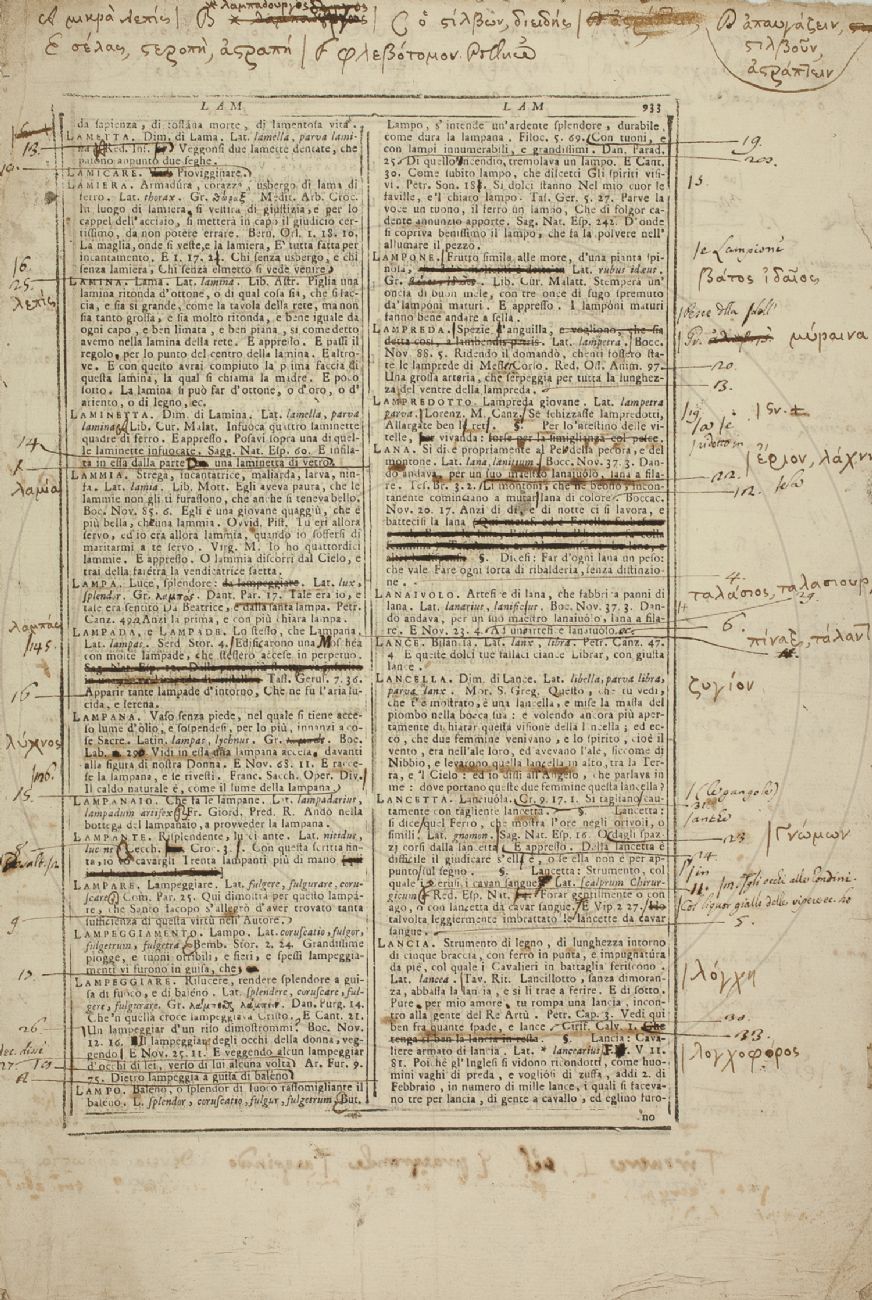 A μικρὰ λεπίς | B λαμπαδουργος | C ὁ στίλβων, διειδής | D ἀπαυγάζειν,
στιλβοῦν,
ἀστράπτειν
E σέλας, στεροπή, ἀστραπή | F φλεβότομον. Polluce
LAM LAM 933
da sapienza, di tostana morte, di lamentosa vita.
LAMETTA. Dim. di Lama. Lat. lamella, parva lami-
na Red. Ins. Veggonsi due lamette dentate, che
pajono appunto due seghe.
LAMICARE. Piovigginare.
LAMIERA. Armadura, corazza, usbergo di lama di
ferro. Lat. thorax. Gr. θώραξ Medit. Arb. Croc.
In luogo di lamiera si vestira di giustizia, e per lo
cappel dell'acciaio, si mettera in capo il giudicio cer-
tissimo, da non potere errare. Bern. Orl. 1. 18. 16.
La maglia, onde si veste, e la lamiera, E' tutta fatta per
incantamento. E 1. 17. 24. Chi senza usbergo, e chi
senza lamiera, Chi senza elmetto si vede venire
LAMINA. Lama. Lat. lamina. Lib. Astr. Piglia una
lamina ritonda d'ottone, o di qual cosa sia, che si fac-
cia, e sia sì grande, come la tavola della rete, ma non
sia tanto grossa, e sia molto ritonda, e bene iguale da
ogni capo, e ben limata, e ben piana, sì come detto
avemo nella lamina della rete. E appresso. E passi il
regolo, per lo punto del centro della lamina. E altro-
ve. E con questo avrai compiuto la prima faccia di
questa lamina, la qual si chiama la madre. E poco
sotto. La lamina si può far d'ottone, o d'oro, o d'
ariento, o di legno, ec.
LAMINETTA. Dim. di Lamina. Lat. lamella, parva
lamina Lib. Cur. Malat. Infuoca quattro laminette
quadre di ferro. E appresso. Posavi sopra una di quel-
le laminette infuocate. Sagg. Nat. Esp. 60. E infila-
ta in essa dalla parte una laminetta di vetro
LAMMIA. Strega, incantatrice, maliarda, larva, nin-
fa. Lat. lamia. Lib. Mott. Egli aveva paura, che le
lammie non gli ti furassono, che anche si teneva bello.
Boc. Nov. 85. 6. Egli è una giovane quaggiù, che è
più bella, che una lammia. Ovvid. Pist. Tu eri allora
servo, ed io era allora lammia, quando io soffersi di
maritarmi a te servo. Virg. M. Io ho quattordici
lammie. E appresso. O lammia discorri dal Cielo, e
trai della faretra la vendicatrice saetta.
LAMPA. Luce, splendore: da lampeggiare. Lat. lux,
splendor. Gr. λαμπάς Dant. Par. 17. Tale era io, e
tale era sentito Da Beatrice, e dalla santa lampa. Petr.
Canz. 49. Anzi la prima, e con più chiara lampa.
LAMPADA, e LAMPADE. Lo stesso, che Lampana.
Lat. lampas. Serd. Stor. 4. Edificarono una Moschea
con molte lampade, che stessero accese in perpetuo.
Tass. Gerus. 7. 36.
Apparir tante lampade d'intorno, Che ne fu l'aria lu-
cida, e serena.
LAMPANA. Vaso senza piede, nel quale si tiene acce-
so lume d'olio, e sospendesi, per lo più, innanzi a co-
se Sacre. Latin. lampas, lychnus. Gr. Boc.
Lab. 290. Vidi in essa una lampana accesa, davanti
alla figura di nostra Donna. E Nov. 68. 11. E racce-
se la lampana, e se rivestì. Franc. Sacch. Oper. Div.
Il caldo naturale è, come il lume della lampana
LAMPANAIO. Che fa le lampane. Lat. lampadarius,
lampadum artifex Fr. Giord. Pred. R. Andò nella
bottega del lampanaio, a proveder la lampana.
LAMPANTE. Risplendente, lucicante. Lat. nitidus,
lucens Cecch. Croc. 3. Con questa scritta fin-
ta, io vo cavargli Trenta lampanti più di mano
LAMPARE. Lampeggiare. Lat. fulgere, fulgurare, coru-
scare Com. Par. 25. Qui dimostra per questo lampa-
re, che Santo Jacopo s'allegrò d'aver trovato tanta
sufficienza di questa virtù nell'Autore.
LAMPEGGIAMENTO. Lampo. Lat. coruscatio, fulgor,
fulgetrum, fulgetra Bemb. Stor. 2. 24. Grandissime
piogge, e tuoni orribili, e fieri, e spessi lampeggia-
menti vi furono in guisa, che
LAMPEGGIARE. Rilucere, rendere splendore a gui-
sa di fuoco, e di baleno. Lat. splendere, coruscare, ful-
gere, fulgurare. Gr. λάμπειν. Dan. Purg. 14.
Che 'n quella croce lampeggiava Cristo. E Cant. 21.
Un lampeggiar d'un riso dimostrommi? Boc. Nov.
12. 16. Il lampeggiar degli occhi della donna, veg-
gendo E Nov. 25. 11. E veggendo alcun lampeggiar
d'occhi di lei, verso di lui alcuna volta Ar. Fur. 9.
75. Dietro lampeggia a guisa di baleno
LAMPO. Baleno, o splendor di fuoco rassomigliante il
baleno. L. splendor, coruscatio, fulgur, fulgetrum But.
Lampo, s'intende un'ardente splendore, durabile
come dura la lampana, Filoc. 5. 69. Con tuoni, e
con lampi innumerabili, e grandissimi. Dan. Parad.
25. Di quello incendio, tremolava un lampo. E Cant.
30. Come subito lampo, che discetti Gli spiriti visi-
vi. Petr. Son. 18. Sì dolci stanno Nel mio cuor le
faville, e 'l chiaro lampo. Tass. Ger. 5. 27. Parve la
voce un tuono, il ferro un lampo, Che di folgor ca-
dente annunzio apporte. Sag. Nat. Esp. 242. D'onde
si copriva benissimo il lampo, che fa la polvere nell'
allumare il pezzo.
LAMPONE. Frutto simile alle more, d'una pianta spi-
nosa, Lat. rubus idæus.
Gr. Lib. Cur. Malatt. Stempera un'
oncia di buon miele, con tre once di sugo spremuto
da' lamponi maturi. E appresso. I lamponi maturi
fanno bene andare a sella.
LAMPREDA. Spezie d'anguilla, e vogliono, che sia
detta così, a lambendis petris. Lat. lampetra. Boc.
Nov. 88. 5. Ridendo il domandò, chenti fossero sta-
te le lamprede di Messer Corso. Red. Oss. Anim. 97.
Una grossa arteria, che serpeggia per tutta la lunghez-
za del ventre della lampreda
LAMPREDOTTO. Lampreda giovane. Lat. lampetra
parva. Lorenz. M. Canz. Se schizzasse lampredotti,
Allargate ben le §. Per lo 'ntestino delle vi-
telle, per vivanda: forse per la simiglianza col pesce.
LANA. Si dice propriamente al Pel della pecora, e del
montone. Lat. lana, lanitium. Boc. Nov. 37. 3. Dan-
do andava, per un suo maestro lanaiuolo, lana a fila-
re. Tes. Br. 3. 2. Li montoni, che ne beono, incon-
tanente cominciano a mutar lana di colore. Boccac.
Nov. 20. 17. Anzi di dì, e di notte ci si lavora, e
battecisi la lana
§. Dicesi: Far d'ogni lana un peso:
che vale Fare ogni sorta di ribalderia, senza distinzio-
ne.
LANAIVOLO. Artefice di lana, che fabbrica panni di
lana. Lat. lanarius, lanificus. Boc. Nov. 37. 3. Dan-
do andava, per un suo maestro lanaiuolo, lana a fila-
re. E Nov. 23. 4. Ad un artefice lanaiuolo
LANCE. Bilancia. Lat. lanx, libra. Petr. Canz. 47.
E queste dolci tue fallaci ciance Librar, con giusta
lance.
LANCELLA. Dim. di Lance. Lat. libella, parva libra,
parva lanx. Mor. S. Greg. Questo, che tu vedi,
che t'è mostrato, è una lancella, e mise la massa del
piombo nella bocca sua: e volendo ancora più aper-
tamente dichiarar questa visione della lancella, ed ec-
co, che due femmine venivano, e lo spirito, cioè il
vento, era nell'ale loro, ed avevano l'ale, siccome di
Nibbio, e levarono quella lancella in alto, tra la Ter-
ra, e 'l Cielo: ed io dissi all'Angelo, che parlava in
me: dove portano queste due femmine questa lancella?
LANCETTA. Lanciuola. Cr. 9. 17. 1. Si tagliano cau-
tamente con tagliente lancetta. §. Lancetta:
si dice quel Ferro, che mostra l'ore negli orivoli, o
simili. Lat. gnomon. Sag. Nat. Esp. 16. O dagli spaz-
zi corsi dalla lancetta E appresso. Della lancetta è
difficile il giudicare s'ell'è, o se ella non è per ap-
punto sul segno. §. Lancetta: Strumento, col
quale i cerusici cavan sangue Lat. scalprum Chirur-
gicum Red. Esp. Nat. Forar gentilmente o con
ago, o con lancetta da cavar sangue. E Vip. 2 27.
talvolta leggiermente imbrattato le lancette da cavar
sangue.
LANCIA. Strumento di legno, di lunghezza intorno
di cinque braccia, con ferro in punta, e impugnatura
da piè, col quale i Cavalieri in battaglia feriscono.
Lat. lancea. Tav. Rit. Lancillotto, sanza dimoran-
za, abbassa la lancia, e si li trae a ferire. E di sotto.
Pure, per mio amore, tu rompa una lancia, incon-
tro alla gente del Re Artù. Petr. Cap. 3. Vedi qui
ben fra quante spade, e lance Cirif. Calv. 1. Che
tenga si ben la lancia in resta. §. Lancia: Cava-
liere armato di lancia. Lat. * lancearius F. V. 11
81. Poichè gl'Inglesi si vidono ricondotti, come huo-
mini vaghi di preda, e vogliosi di zuffa, addì 2. di
Febbraio, in numero di mille lance, i quali si faceva-
no tre per lancia, di gente a cavallo, ed eglino furo-
no
13.
16.
25.
λεπίς
14
λαμία
λαμπάς
145.
16
λύχνος
15.
9
13.
26
19.
200.
15.
le Lampione
βάτος ἰδαῖος
μύραινα
20.
13.
ἔριον, λάχνη
22.
12.
4.
ταλάσιος, ταλασιουρ
29.
6.
πίναξ, τάλαντ
ζυγίον
23
| Γνώμων
24
11.
5.
| λόγχη
30.
33.
| λογχοφόρος